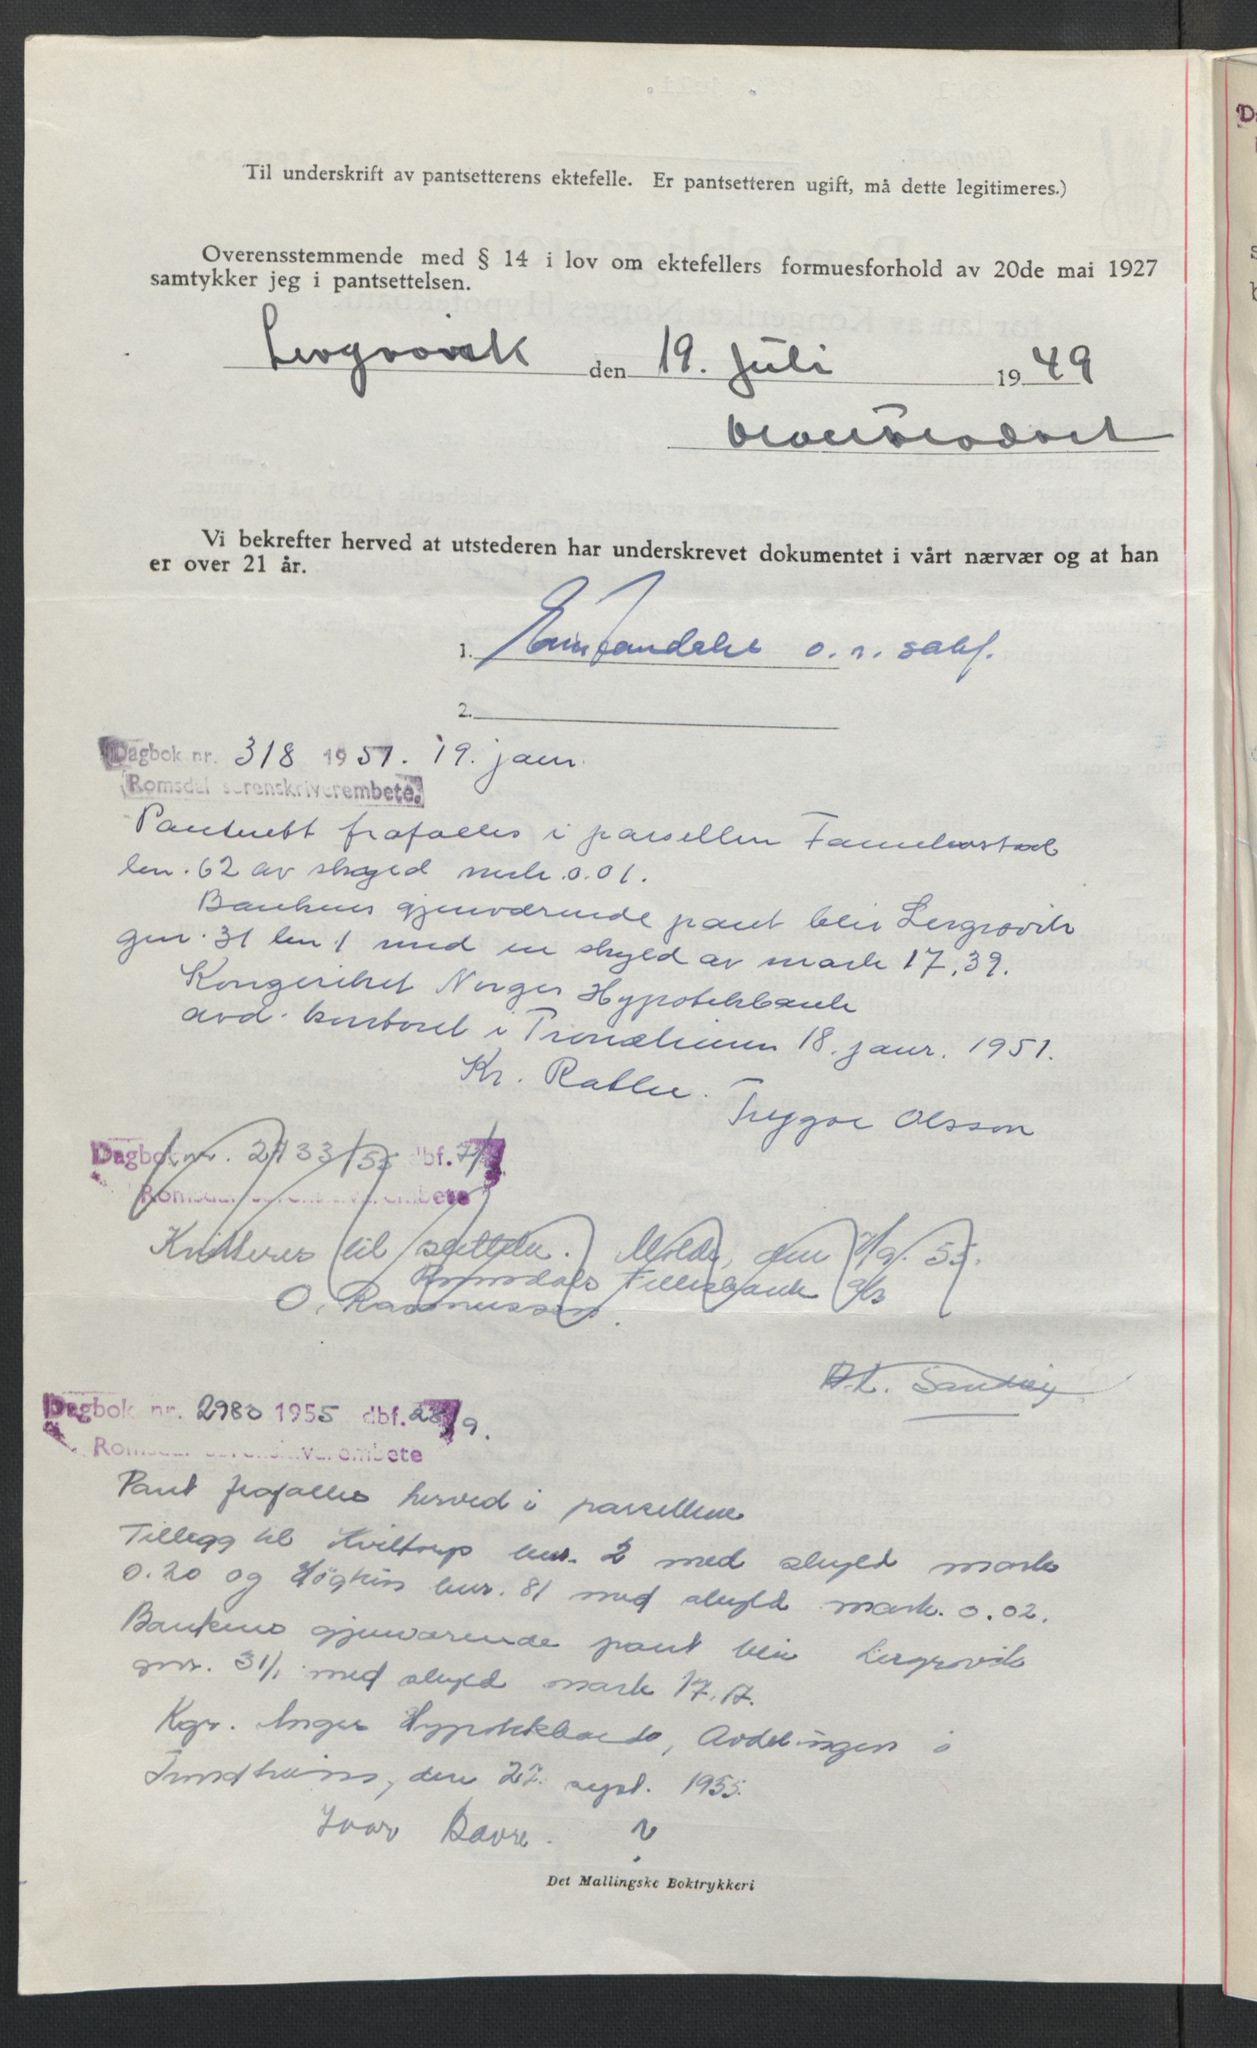 Til underskrift av pantsetterens ektefelle. Er pantsetteren ugift, må dette legitimeres.)
Overensstemmende med § 14 i lov om ektefellers formuesforhold av 20de mai 1927
samtykker jeg i pantsettelsen.
Lergrovik den 19. juli 1949
Vi bekrefter herved at utstederen har underskrevet dokumentet i vårt nærvær og at han
er over 21 år.
1. o. r. sakf.
2.
Dagbok nr. 318 1951. 19. jan.
Romsdal sorenskriverembete.
Pantrett frafalles i parsellen
bn. 62 av skyld mrk. 0.01.
Bankens gjenværende pant blir Lergrovik
gnr. 31 bnr 1 med en skyld av mark 17,39.
Kongeriket Norges Hypotekbank
avd. kontoret i Trondheim 18. janr. 1951.
Kr. Trygve Olsson
Dagbok nr. 2733/55 dbf. 7/9
Romsdal sorenskriverembete
Kvitteres til slettelse. Molde, den 7/9. 55.
Romsdals Fellesbank A/S
O. Rasmussen.
Sandvig
Dagbok nr. 2980 1955 dbf. 28/9.
Romsdal sorenskriverembete
Pant frafalles herved i parsellene
Tillegg til Hviltorp bnr. 2 med skyld mark
0.20 og bnr. 81 med skyld mark. 0.02.
Bankens gjenværende pant blir Lergrovik
gnr. 31/1 med skyld mark 17.17.
Kgr. Norges Hypotekbank, Avdelingen i
Trondheim, den 27. sept. 1955.
Ivar
Det Mallingske Boktrykkeri